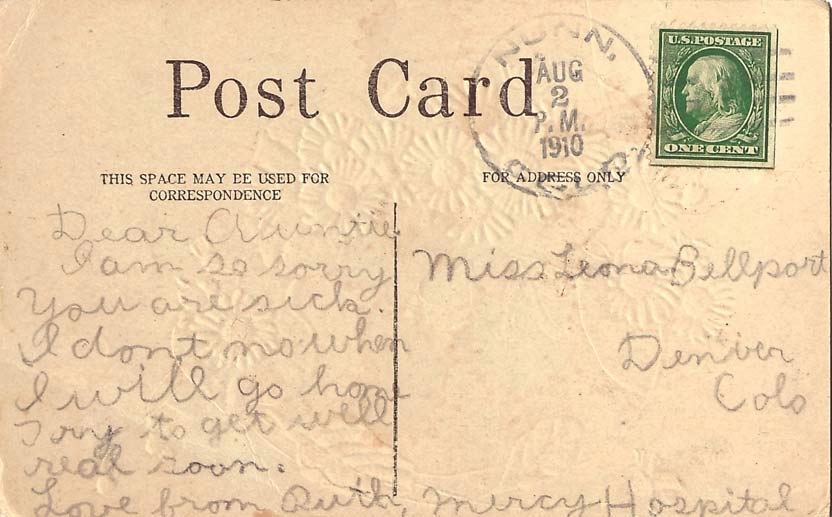 Post Card
NUNN.
AUG
2
P.M.
1910
COLO.
U.S. POSTAGE
ONE CENT
THIS SPACE MAY BE USED FOR
CORRESPONDENCE
FOR ADDRESS ONLY
Dear Auntie
I am so sorry
you are sick.
I dont no when
I will go home
Try to get well
real soon.
Love from Ruth,
Miss Leona Bellport
Denver
Colo
Mercy Hospital